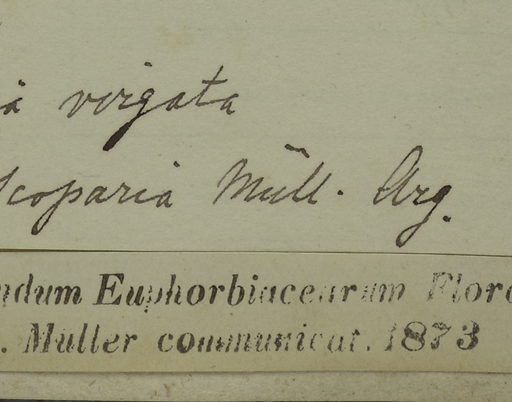 virgata
scoparia Müll. Arg.
Euphorbiacearum Flor
. Muller communicat. 1873